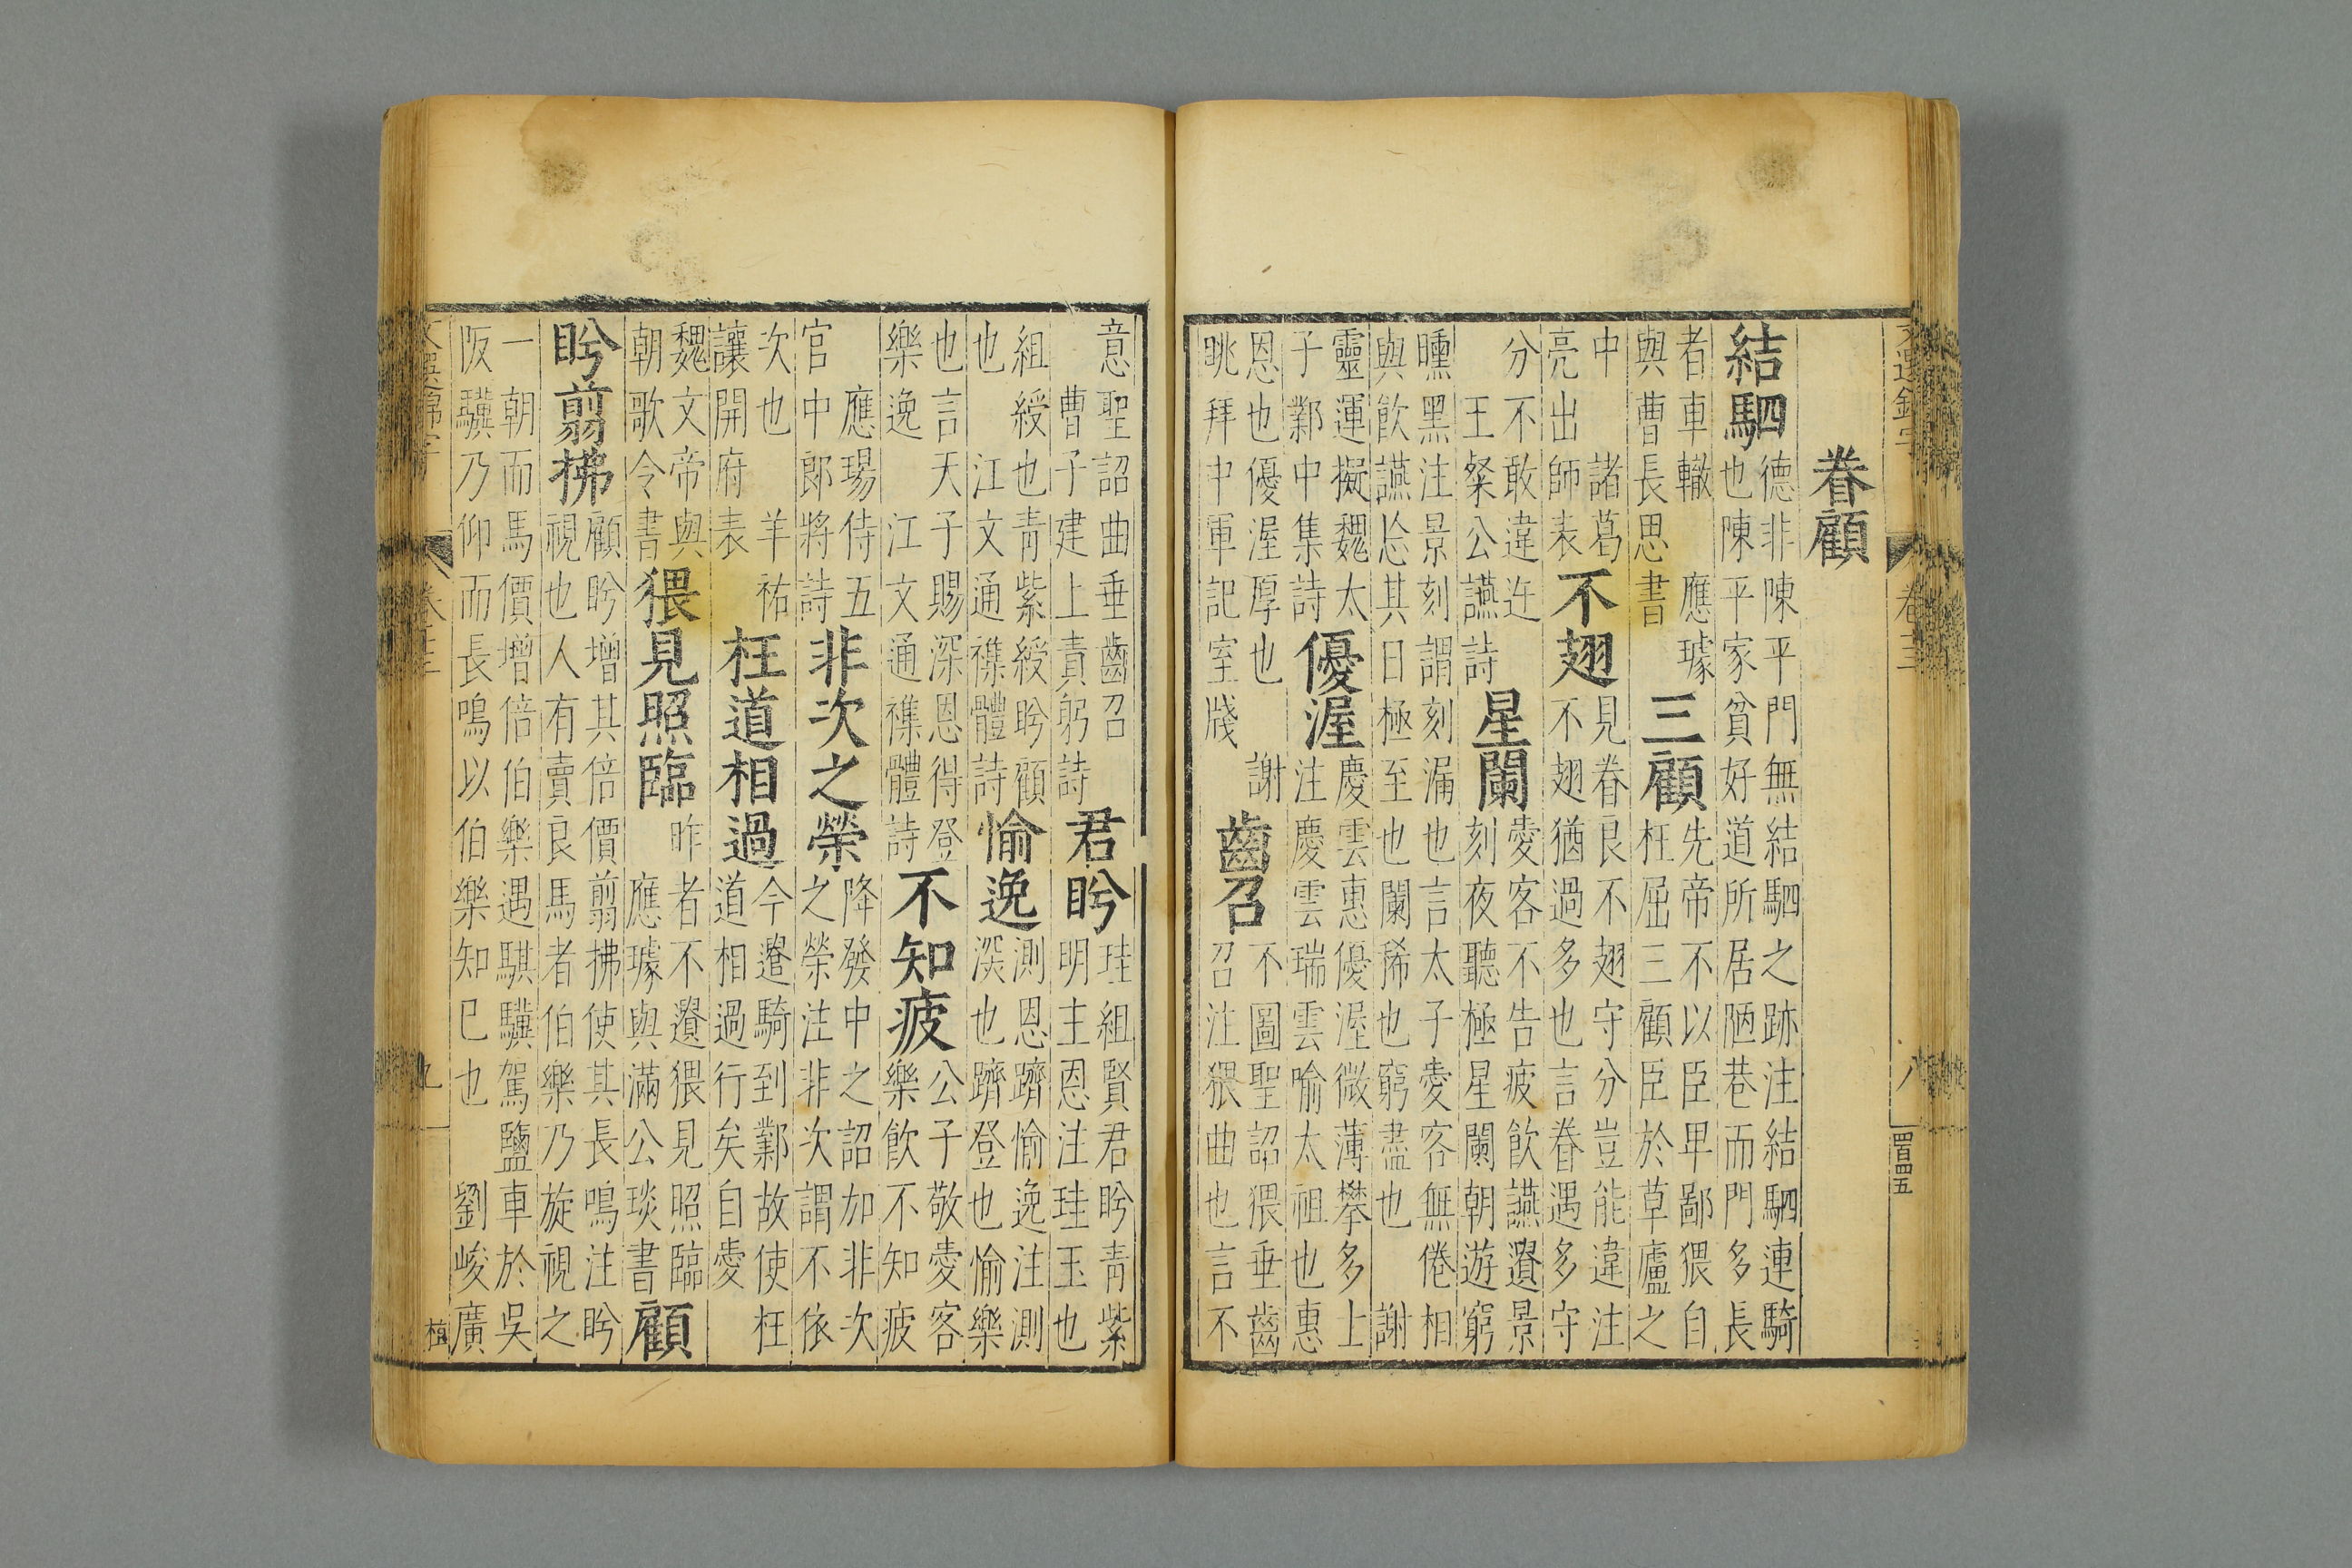 文選錦字 卷十三 八 四百四五
眷顧
結駟
德非陳平門無結駟之跡注結駟連騎
也陳平家貧好道所居陋巷而門多長
者車轍 應璩
與曹長思書
三顧
先帝不以臣卑鄙猥自
枉屈三顧臣於草廬之
中 諸葛
亮出師表
不翅
見眷良不翅守分豈能違注
不翅猶過多也言眷遇多守
分不敢違迕
王粲公讌詩
星闌
愛客不告疲飲讌遺景
刻夜聽極星闌朝遊窮
曛黑注景刻謂刻漏也言太子愛客無倦相
與飲讌忩其日極至也闌稀也窮盡也 謝
靈運擬魏太
子鄴中集詩
優渥
慶雲惠優渥微薄攀多上
注慶雲瑞雲喻太祖也惠
恩也優渥厚也 謝
眺拜中軍記室牋
齒召
不圖聖詔猥垂齒
召注猥曲也言不
意聖詔曲垂齒召
曹子建上責躬詩
君眄
珪組賢君眄青紫
明主恩注珪玉也
組綬也青紫綬眄顧
也 江文通襍體詩
愉逸
測恩躋愉逸注測
深也躋登也愉樂
也言天子賜深恩得登
樂逸 江文通襍體詩
不知疲
公子敬愛客
樂飲不知疲
應瑒侍五
官中郎將詩
非次之榮
降發中之詔加非次
之榮注非次謂不依
次也 羊祜
讓開府表
枉道相過
今遣騎到鄴故使枉
道相過行矣自愛
魏文帝與
朝歌令書
猥見照臨
昨者不遺猥見照臨
應璩與滿公琰書
顧
眄翦拂
顧眄增其倍價翦拂使其長鳴注眄
視也人有賣良馬者伯樂乃旋視之
一朝而馬價增倍伯樂遇騏驥駕鹽車於吳
阪驥乃仰而長鳴以伯樂知巳也 劉峻廣
文選錦字 卷十三 九 植